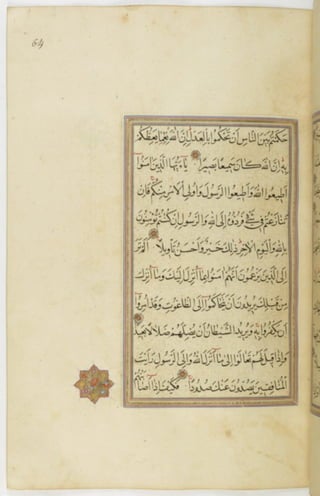 64
حَكَمْتُمْ بَيْنَ النَّاسِ أَنْ تَحْكُمُوا بِالْعَدْلِ إِنَّ اللَّهَ نِعِمَّا يَعِظُكُمْ
بِهِ إِنَّ اللَّهَ كَانَ سَمِيعًا بَصِيرًا يَا أَيُّهَا الَّذِينَ آمَنُوا
أَطِيعُوا اللَّهَ وَأَطِيعُوا الرَّسُولَ وَأُولِي الْأَمْرِ مِنْكُمْ فَإِنْ
تَنَازَعْتُمْ فِي شَيْءٍ فَرُدُّوهُ إِلَى اللَّهِ وَالرَّسُولِ إِنْ كُنْتُمْ تُؤْمِنُونَ
بِاللَّهِ وَالْيَوْمِ الْآخِرِ ذَلِكَ خَيْرٌ وَأَحْسَنُ تَأْوِيلًا أَلَمْ تَرَ
إِلَى الَّذِينَ يَزْعُمُونَ أَنَّهُمْ آمَنُوا بِمَا أُنْزِلَ إِلَيْكَ وَمَا أُنْزِلَ
مِنْ قَبْلِكَ يُرِيدُونَ أَنْ يَتَحَاكَمُوا إِلَى الطَّاغُوتِ وَقَدْ أُمِرُوا
أَنْ يَكْفُرُوا بِهِ وَيُرِيدُ الشَّيْطَانُ أَنْ يُضِلَّهُمْ ضَلَالًا بَعِيدًا
وَإِذَا قِيلَ لَهُمْ تَعَالَوْا إِلَى مَا أَنْزَلَ اللَّهُ وَإِلَى الرَّسُولِ رَأَيْتَ
الْمُنَافِقِينَ يَصُدُّونَ عَنْكَ صُدُودًا فَكَيْفَ إِذَا أَصَابَتْهُمْ